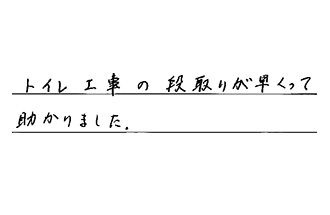 トイレ工事の段取りが早くって
助かりました.